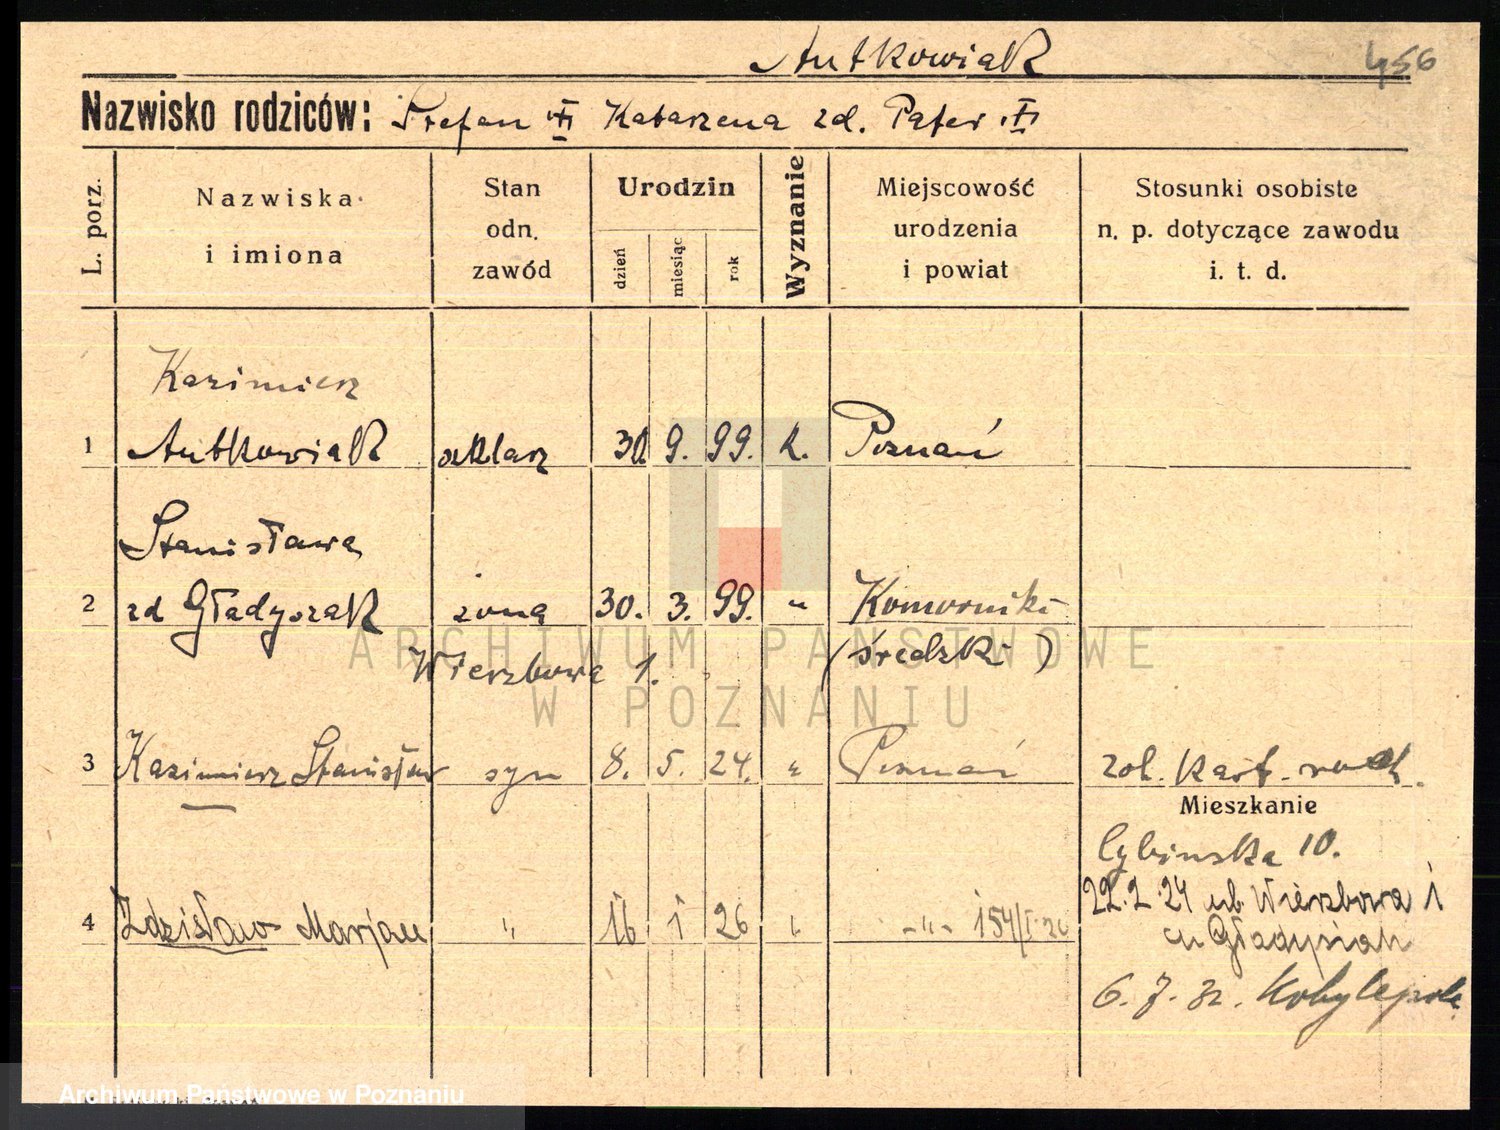 Antkowiak 456
Nazwisko rodziców: Stefan Katarzena zd. Pater
L. porz.
Nazwiska i imiona
Stan odn. zawód
Urodzin
dzień miesiąc rok
Wyznanie
Miejscowość urodzenia i powiat
Stosunki osobiste n. p. dotyczące zawodu i. t. d.
Kazimierz
1 Antkowiak szklarz 30. 9. 99. k. Poznań
Stanisława
2 zd Gładyszak żona 30. 3. 99. " Komorniki
Wierzbowa 1. (średzki)
3 Kazimierz Stanisław syn 8. 5. 24. " Poznań zob. Kart.
Mieszkanie
Cybinska 10.
22.2.24 ul. Wierzbowa 1
4 Zdzisław Marjan " 16 1 26 " -"- 154/I.26
Gładysiak
6.7.32. Kobylepole
ARCHIWUM PAŃSTWOWE
W POZNANIU
Archiwum Państwowe w Poznaniu